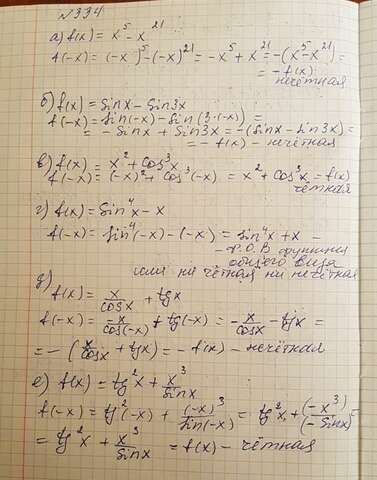 №334
а) f(x) = x⁵ - x²¹
f(-x) = (-x)⁵ - (-x)²¹ = -x⁵ + x²¹ = -(x⁵ - x²¹) =
= -f(x).
нечётная
б) f(x) = sinx - sin3x
f(-x) = sin(-x) - sin(3·(-x)) =
= - sinx + sin3x = -(sinx - sin3x) =
= - f(x) - нечётная
в) f(x) = x² + cos³x
f(-x) = (-x)² + cos³(-x) = x² + cos³x = f(x)
чётная
г) f(x) = sin⁴x - x
f(-x) = sin⁴(-x) - (-x) = sin⁴x + x =
- Ф.О.В. функция
общего вида
или ни чётная ни нечётная
д)
f(x) = x/cosx + tgx
f(-x) = -x/cos(-x) + tg(-x) = -x/cosx - tgx =
= - (x/cosx + tgx) = - f(x) - нечётная
е) f(x) = tg²x + x³/sinx
f(-x) = tg²(-x) + (-x)³/sin(-x) = tg²x + (-x³)/(-sinx) =
= tg²x + x³/sinx = f(x) - чётная